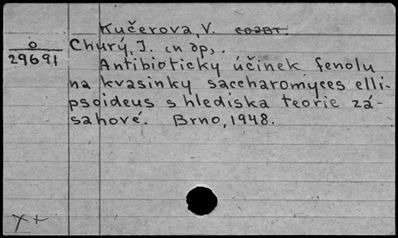 Kučerova, V. соавт.
o
29691
Churý, J. (и др).
Antibioticky účinek fenolu
na kvasinky saccharomyces elli-
psoideus s hlediska teorie zá-
sahové. Brno, 1948.